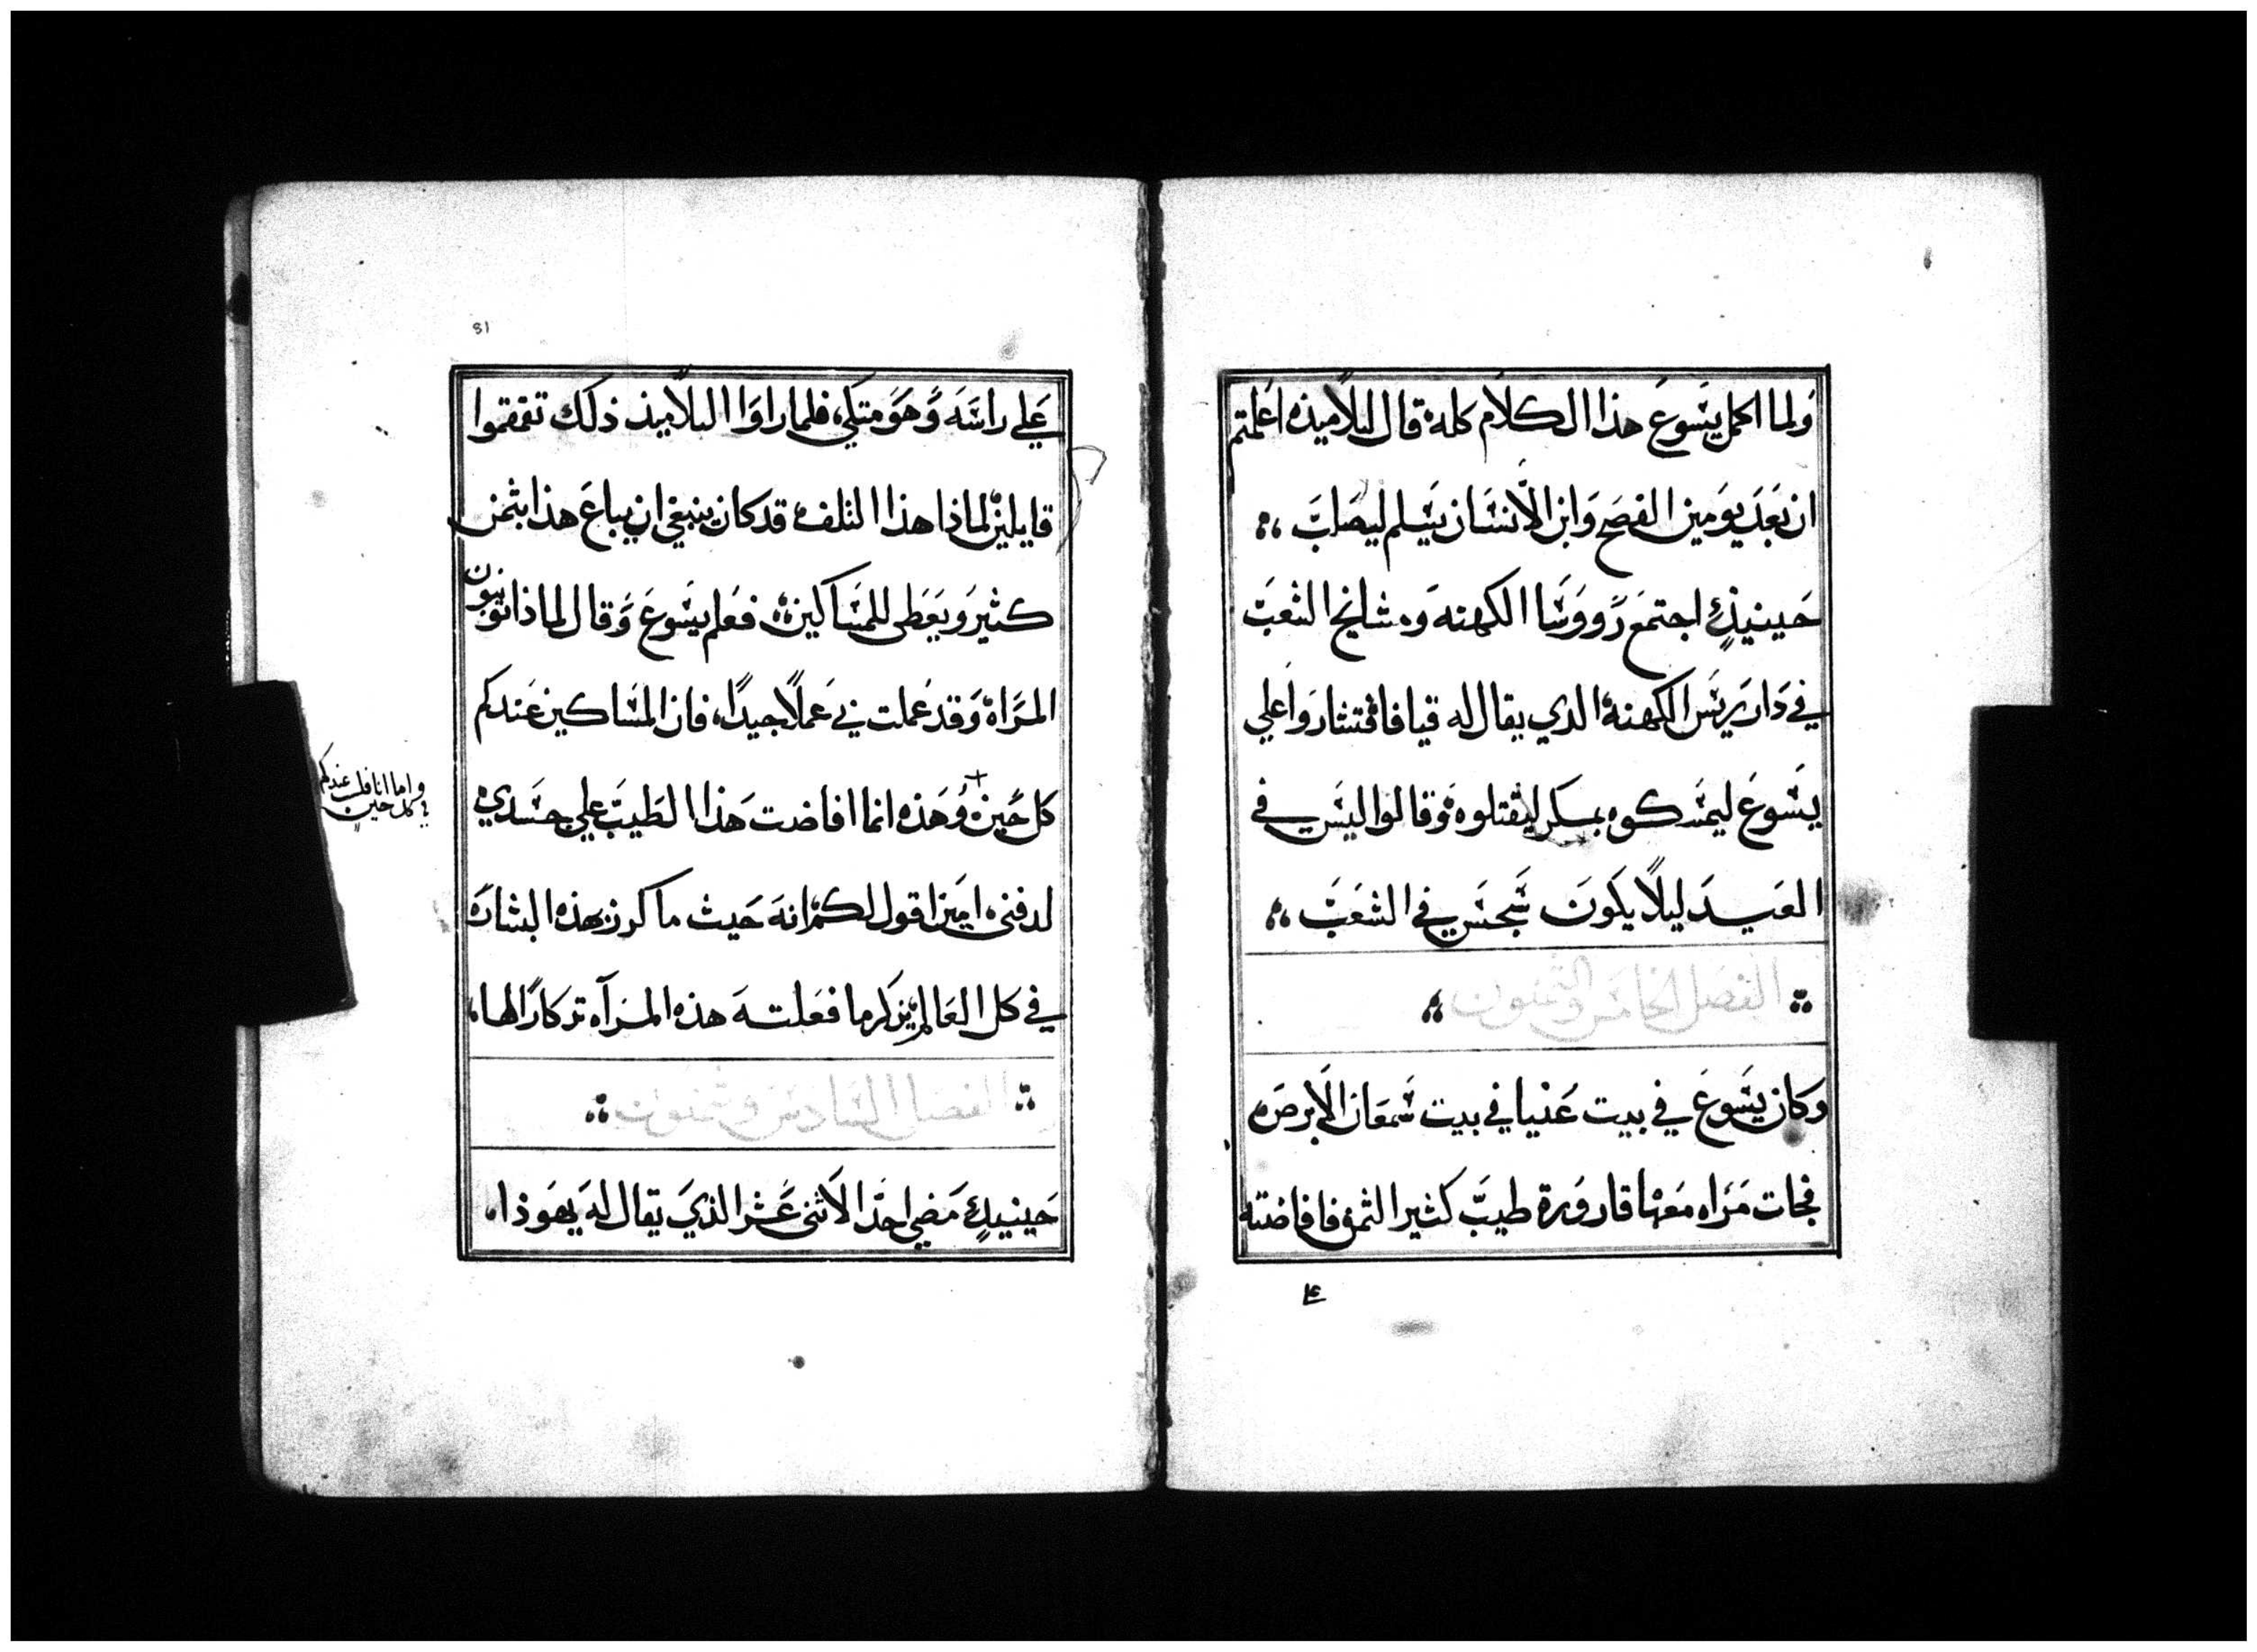 ولما اكمل يسوع هذا الكلام كله قال لتلاميذه اعلمتم
ان بعد يومين الفصح وابن الانسان يسلم ليصلب
حينيذٍ اجتمع رووسا الكهنه ومشايخ الشعب
في دار رييس الكهنه الدي يقال له قيافا فتشاروا علي
يسوع ليمسكوه بمكر ليقتلوه وقالوا ليس في
العيد ليلا يكون سجس في الشعب
الفصل الخامس والثمنون
وكان يسوع في بيت عنيا في بيت سمعان الابرص
فجات مراه معها قارورة طيب كثير الثمن فافاضته
علي
علي راسه وهو متكي فلما راوا التلاميذ ذلك تقمقموا
قايلين لماذا هذا التلف قد كان ينبغي ان يباع هذا بثمن
كثير ويعطى للمساكين فعلم يسوع وقال لماذا توبنون
المراة وقد عملت في عملاً جيداً، فان المساكين عندكم
كل حين وهذه انما افاضت هذا الطيب علي جسدي
واما انا فلست عندكم
في كل حين
لدفني، امين اقول لكم انه حيث ما كرز بهذه البشاره
في كل العالم يذكر ما فعلته هذه المرآه تدكارًا لها
الفصل السادس وثمنون
حينيدٍ مضي احد الاثني عشر الذي يقال له يهوذا
81